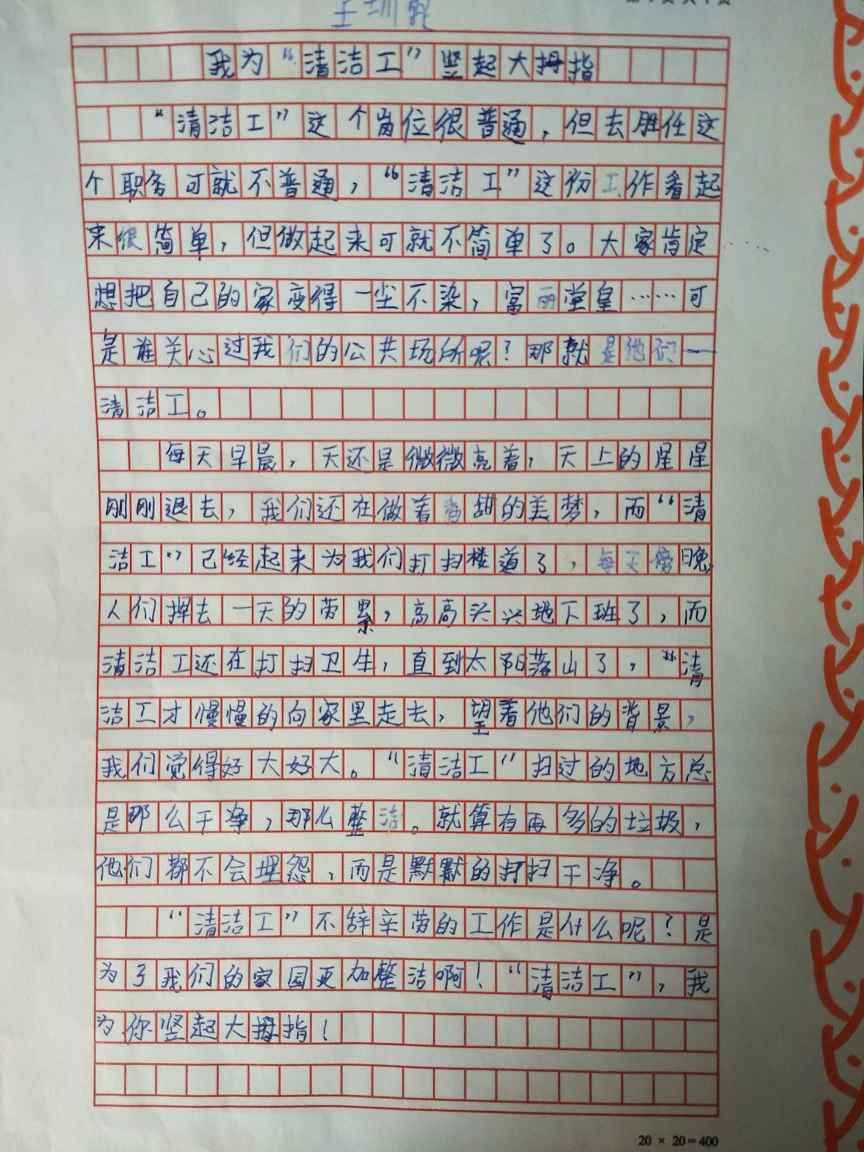 我为“清洁工”竖起大拇指
“清洁工”这个岗位很普通，但去胜任这
个职务可就不普通，“清洁工”这份工作看起
来很简单，但做起来可就不简单了。大家肯定
想把自己的家变得一尘不染，富丽堂皇……可
是谁关心过我们的公共场所呢？那就是他们一
清洁工。
每天早晨，天还是微微亮着，天上的星星
刚刚退去，我们还在做着香甜的美梦，而“清
洁工”已经起来为我们打扫楼道了，每天傍晚
人们挥去一天的劳累，高高兴兴地下班了，而
清洁工还在打扫卫生，直到太阳落山了，“清
洁工才慢慢的向家里走去，望着他们的背景，
我们觉得好大好大。“清洁工”扫过的地方总
是那么干净，那么整洁。就算有再多的垃圾，
他们都不会埋怨，而是默默的打扫干净。
“清洁工”不辞辛劳的工作是什么呢？是
为了我们的家园更加整洁啊！“清洁工”，我
为你竖起大拇指！
20 × 20=400